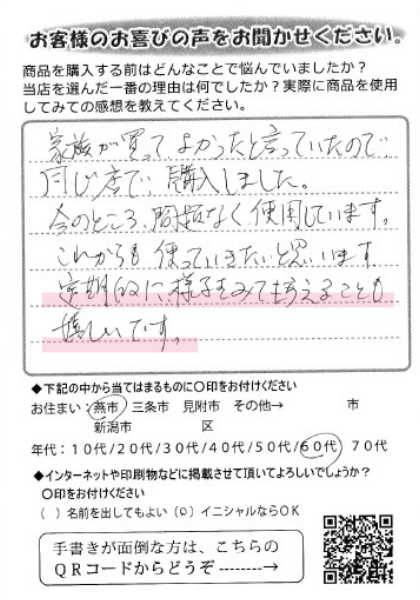 お客様のお喜びの声をお聞かせください。
商品を購入する前はどんなことで悩んでいましたか？
当店を選んだ一番の理由は何でしたか？実際に商品を使用
してみての感想を教えてください。
家族が買って、よかったと言っていたので、
同じ店で、購入しました。
今のところ、問題なく使用しています。
これからも使っていきたいと思います
定期的に、様子をみて もらえることも
嬉しいです。
◆下記の中から当てはまるものに〇印をお付けください
お住まい：燕市 三条市 見附市 その他→ 市
新潟市 区
年代：１０代/２０代/３０代/４０代/５０代/６０代/ ７０代
◆インターネットや印刷物などに掲載させて頂いてよろしいでしょうか？
〇印をお付けください
（ ）名前を出してもよい（○）イニシャルならＯＫ
手書きが面倒な方は、こちらの
ＱＲコードからどうぞ--------→